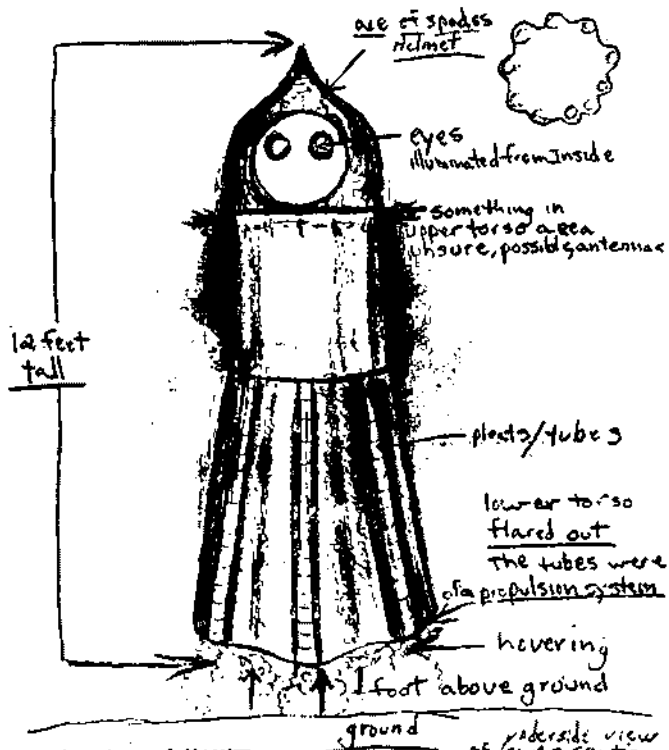 ace of spades
helmet
eyes
illuminated from Inside
something in
upper torso area
unsure, possible antennae
12 feet
tall
pleats/tubes
lower torso
flared out
The tubes were
propulsion system
hovering
1 foot above ground
ground
underside view